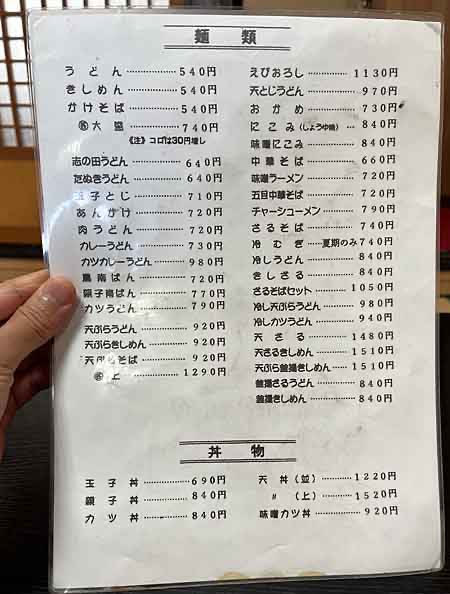 麺類
うどん 540円
きしめん 540円
かけそば 540円
大盛 740円
《注》コロは30円増し
志の田うどん 640円
たぬきうどん 640円
玉子とじ 710円
あんかけ 720円
肉うどん 720円
カレーうどん 730円
カツカレーうどん 980円
鴨南ばん 720円
親子南ばん 770円
カツうどん 790円
天ぷらうどん 920円
天ぷらきしめん 920円
天ぷらそば 920円
上 1290円
えびおろし 1130円
天とじうどん 970円
おかめ 730円
にこみ(しょうゆ味) 840円
味噌にこみ 840円
中華そば 660円
味噌ラーメン 720円
五目中華そば 720円
チャーシューメン 790円
ざるそば 740円
冷むぎ 夏期のみ740円
冷しうどん 840円
きしざる 840円
ざるそばセット 1050円
冷し天ぷらうどん 980円
冷しカツうどん 940円
天ざる 1480円
天ざるきしめん 1510円
天ぷら釜揚きしめん 1510円
釜揚ざるうどん 840円
釜揚きしめん 840円
丼物
玉子丼 690円
親子丼 840円
カツ丼 840円
天丼(並) 1220円
〃(上) 1520円
味噌カツ丼 920円